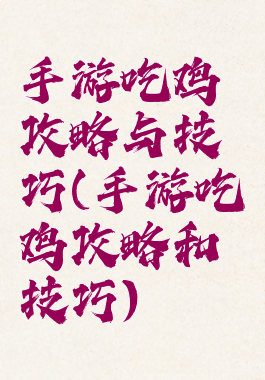 手游吃鸡
攻略与技
巧(手游吃
鸡攻略和
技巧)